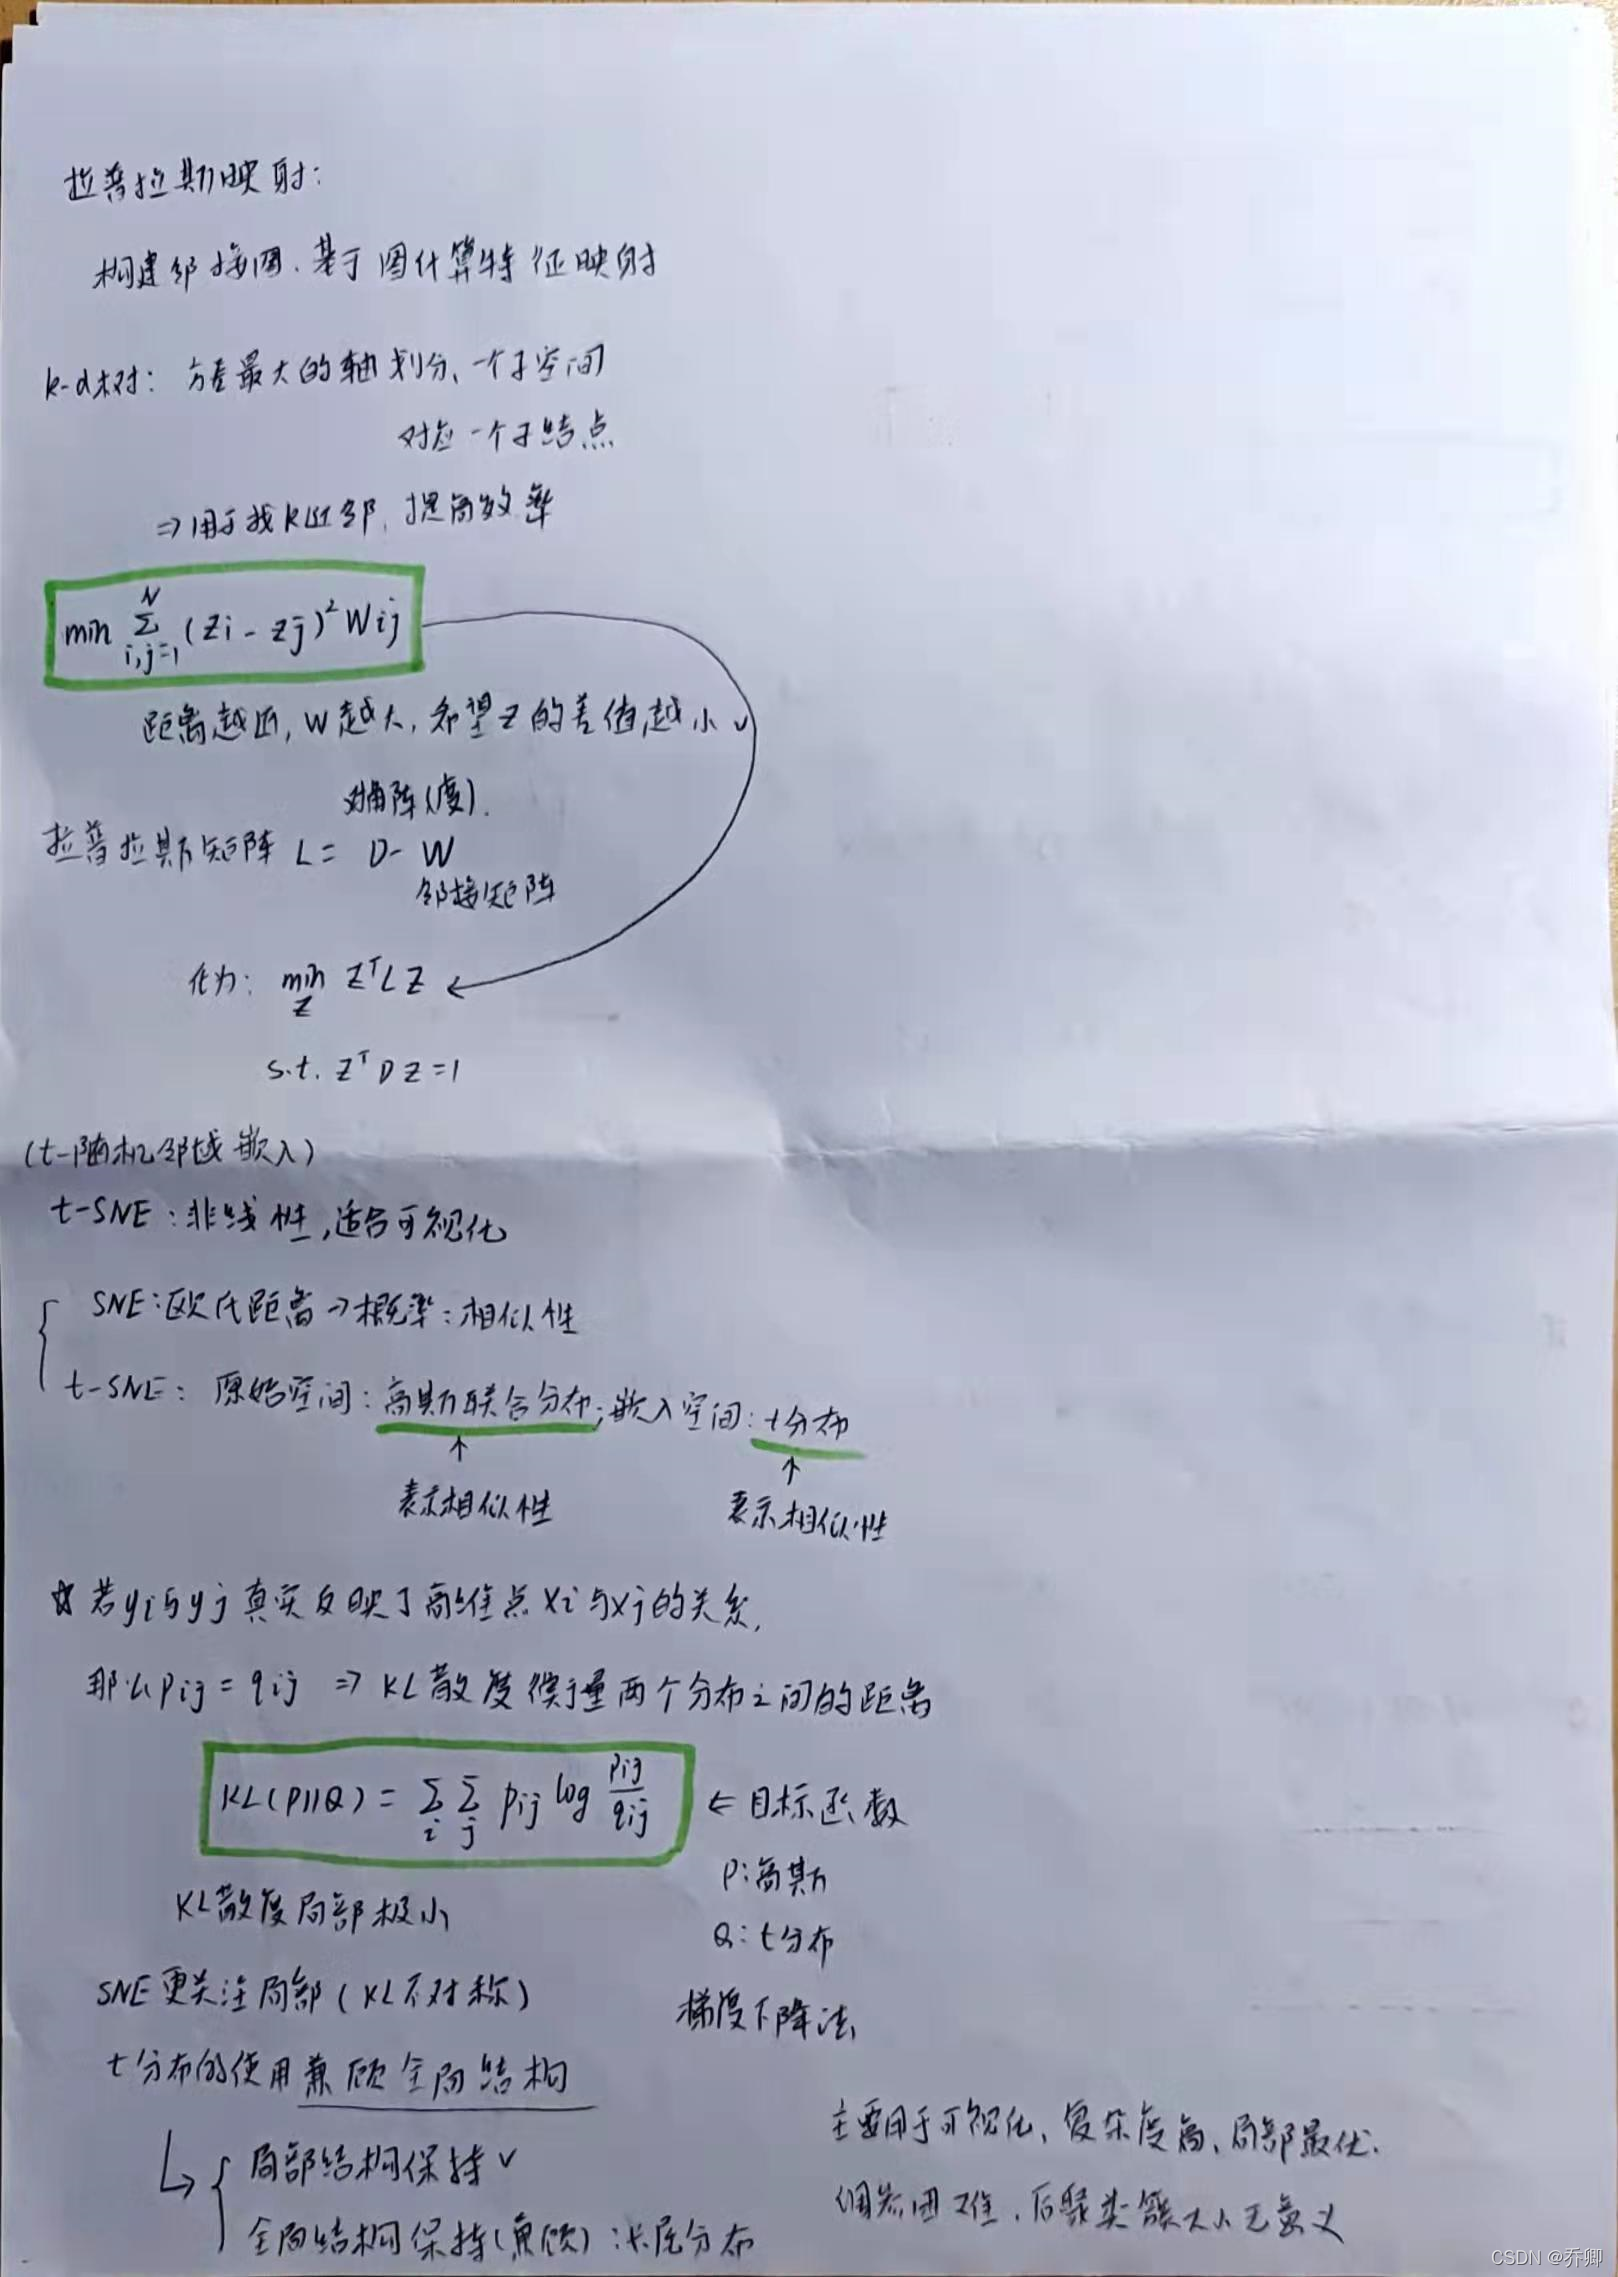 拉普拉斯映射:
构建邻接图、基于图计算特征映射
k-d树: 方差最大的轴划分、一个子空间
对应一个子结点
⇒用于找k近邻、提高效率
min Σ_{i,j=1}^{N} (zi - zj)² Wij
距离越近, W越大, 希望z的差值越小 ✓
对角阵(度).
拉普拉斯矩阵 L = D - W
邻接矩阵
化为: min_z zᵀLz
s.t. zᵀDz=1
(t-随机邻域嵌入)
t-SNE: 非线性,适合可视化
SNE:欧氏距离→概率:相似性
t-SNE: 原始空间:高斯联合分布;嵌入空间:t分布
↑ ↑
表示相似性 表示相似性
☆若yi与yj真实反映了高维点xi与xj的关系,
那么pij = qij ⇒ KL散度衡量两个分布之间的距离
KL(P||Q) = Σ_i Σ_j pij log pij/qij ⇐ 目标函数
P:高斯
KL散度局部极小
Q: t分布
SNE更关注局部(KL不对称)
梯度下降法
t分布的使用兼顾全局结构
主要用于可视化、复杂度高、局部最优.
局部结构保持✓
调参困难、后聚类簇大小无意义
全局结构保持(兼顾):长尾分布
CSDN @乔卿